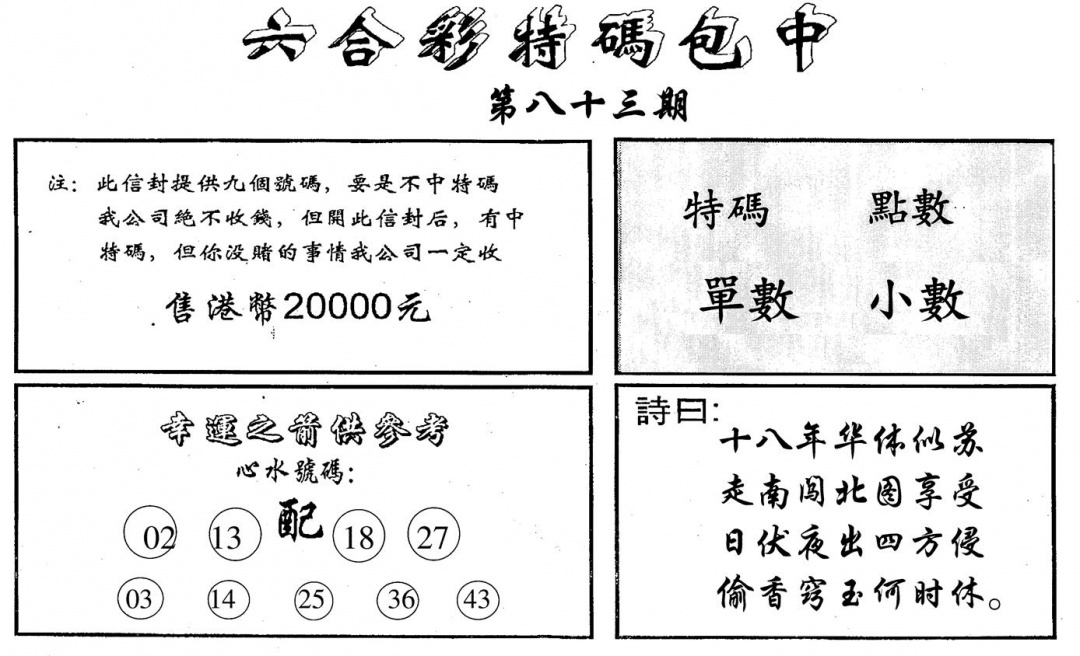 六合彩特碼包中
第八十三期
注：此信封提供九個號碼，要是不中特碼
我公司絕不收錢，但開此信封后，有中
特碼，但你没賭的事情我公司一定收
售港幣20000元
特碼 點數
單數 小數
幸運之箭供參考
心水號碼：
02 13 配 18 27
03 14 25 36 43
詩曰：
十八年华体似苏
走南闯北图享受
日伏夜出四方侵
偷香窍玉何时休。